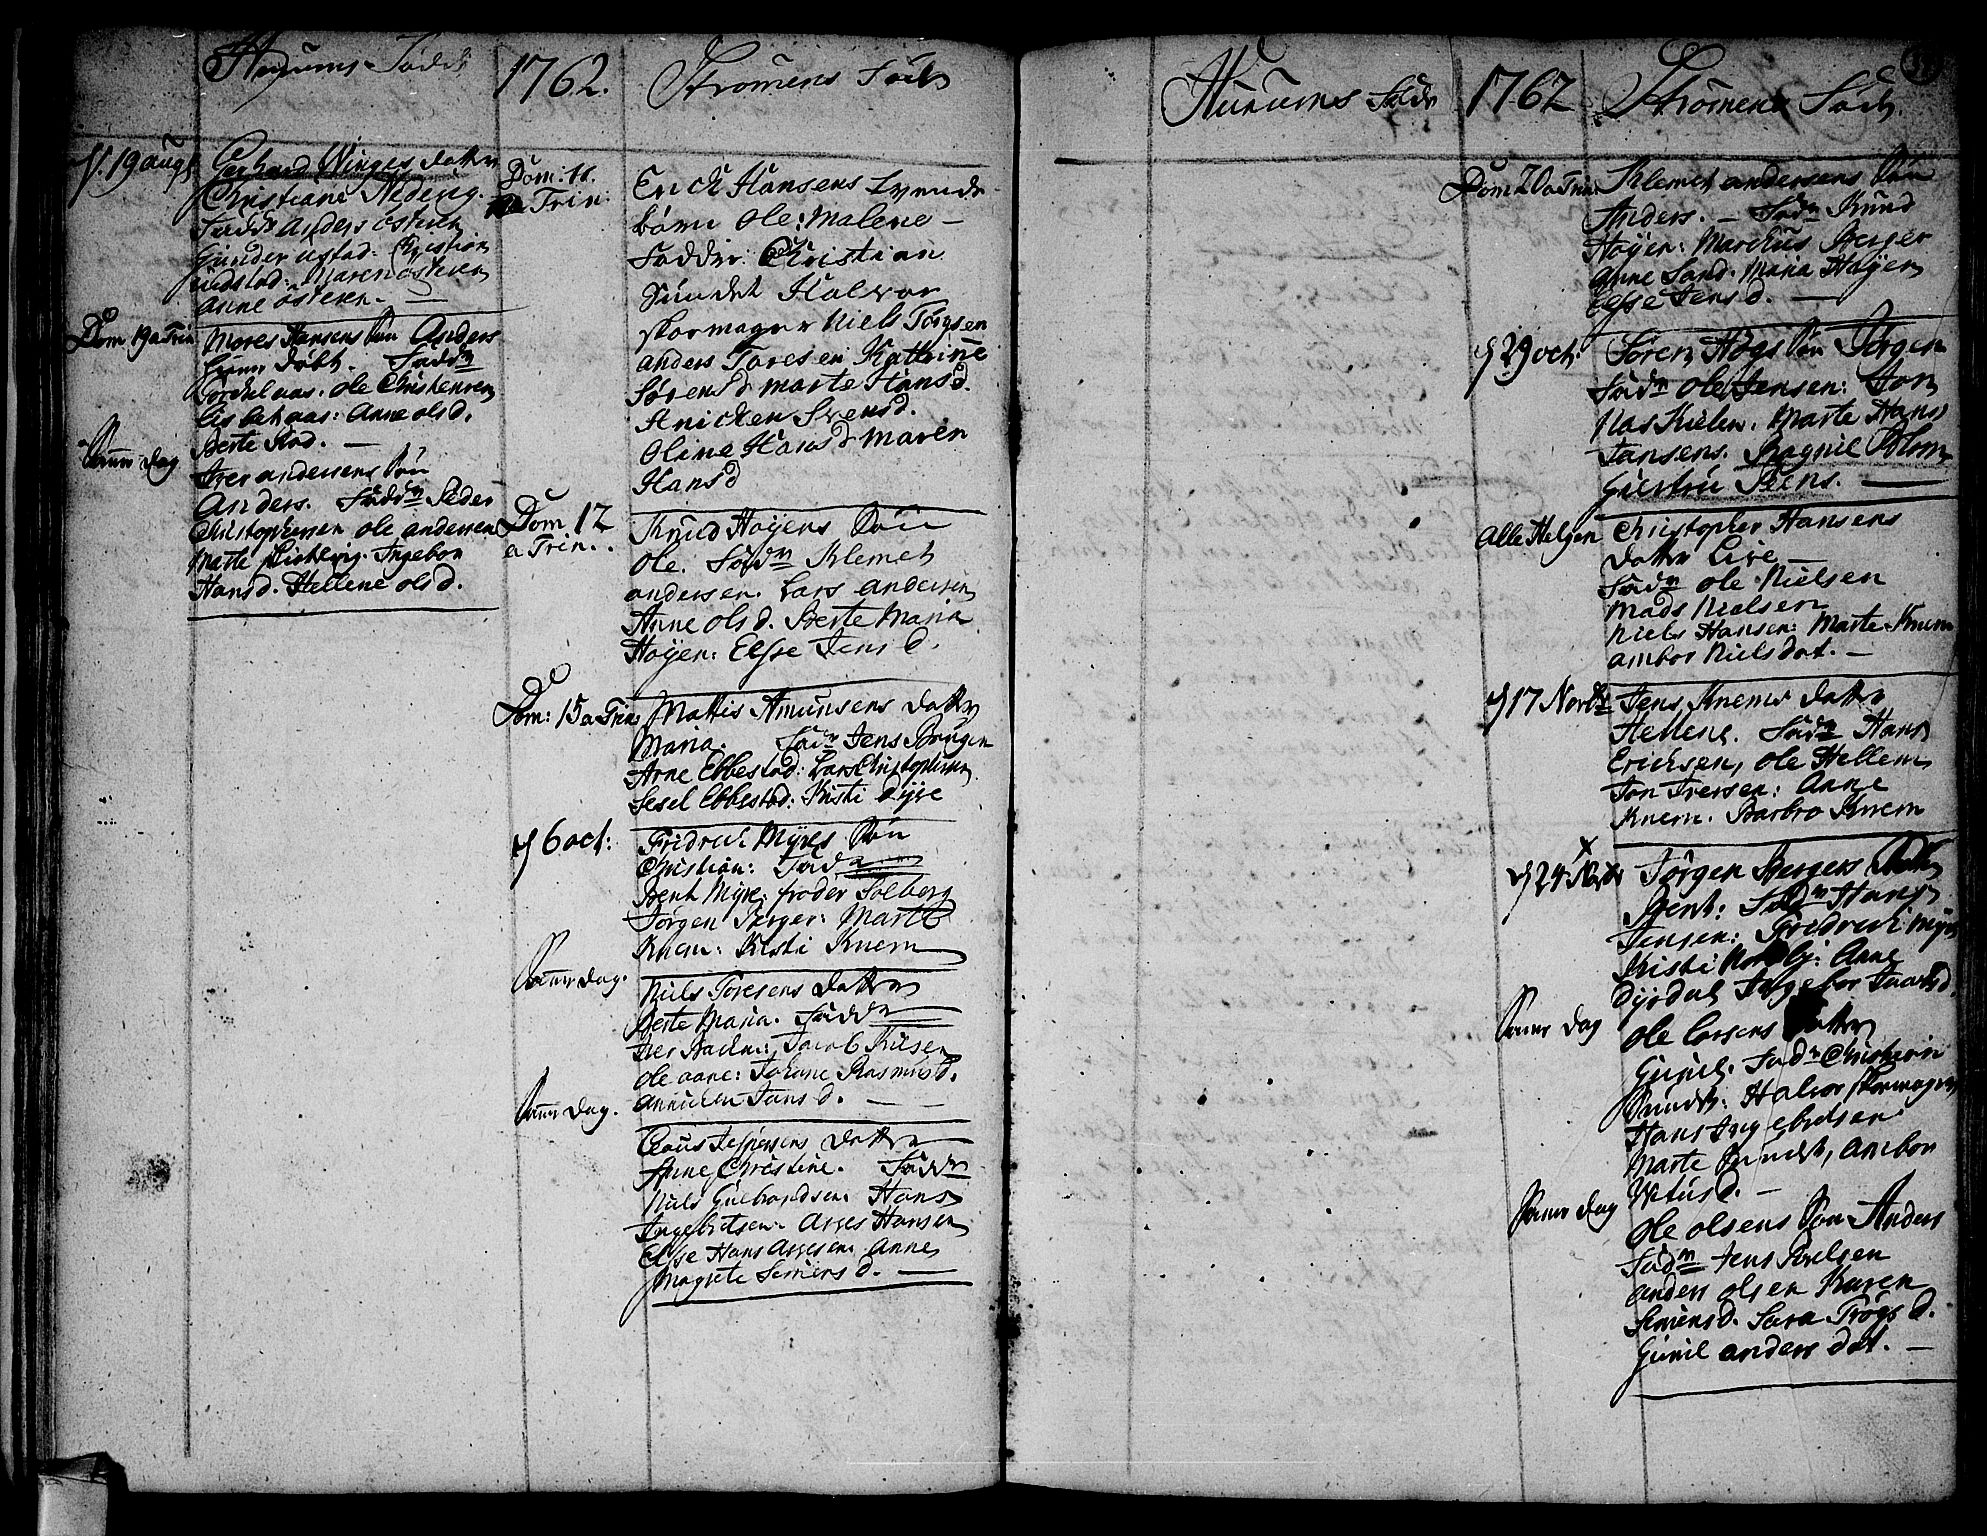 Hurums Fødde
1762.
Strømens Fødde
d. 19 augt
Gerhard Winges datter
Christiane Nideng.
Fadd: Anders østeren
Gunder ugstad: Christian
udstad: Maren østeren
anne østeren. —
Dom 19 a Trin
Mores Hansens Søn Anders
hiem døbt. Faddr
Torckel aas. ole Christensen
Lisbet aas: Anne ols d.
Berte Stod. —
Samme dag
Iver andersens Søn
Anders. Faddr Peder
Christophersen ole andersen
Marte Ingebor
Hans d. Hellene ols d.
Dom: 11.
a Trin:
Erick Hansens tvende
børn Ole: Malene —
Fadder: Christian
Sundet Halvor
skormager Niels Torgsen
anders Toresen Kathrine
Sørens d marte Hans d.
Anicken Svens d.
Oline Hans d Maren
Hans d
Dom 12
a Trin..
Knud Høyens Søn
Ole. Fadr Klemet
andersen. Lars andersen
Anne ols d. Berte Maria
Høyen: Elsse Jens d.
Dom: 15 a Trin:
Mattis Amunsens datter
Maria. Fadr Jens Bragen
Arne Ebbestad: Lars Christophersen
Sesel Ebbestad: Kisti Dyre
d 6 oct:
Fridrich Myres Søn
Christian: Fadr
Bent Myre: froder Solberg
Jørgen Berger: Marte
Knem: Kisti Knem
Samme dag.
Niels Toresens datter
Berte Maria. Faddr
Iver Jacob
ole aane: Johane Rasmus d.
annichen Jans d. —
Samme dag.
Claus Jespersens datter
Anne Christine. Faddr
Niels Gulbrandsen. Hans
Ingebretsen. Asges Hansen
Elsse Hans Asgesen. Anne
Magrete Simens d. —
Hurums Fødde
1762
Strømens Fødde
Dom 20 a Trin
Klemet andersens Søn
Anders. — Fadr Knud
Høyen: Marchus Berger
Anne Sand. Maria Høyen
Elsse Jens d. —
d 29 oct:
Søren Høgs Søn Jørgen
Fadr ole Jensen: Jon
Nas Kielen. Marte Hans
Jansens. Ragnil Blom
Giestru Peens. —
Alle Helgen
Christopher Hansens
datter Live —
Fadr ole Nielsen
Mads Nielsen
Niels Hansen: Marte Knem
ambor Niels dat. —
d 17 Novbr
Jens Knems datter
Hellene. Fadr Hans
Ericksen, ole Hellem
Jon Iversen: Anne
Knem. Barbro Knem
d 24 Novbr
Jørgen Bergers
Bent: Fadr Hans
Jensen: Fridrich Myre
Kisti: Anne
Dyrdal Ingebor
Samme dag
Ole Larsens datter
Gunil. Fadr Christian
Sundet: Halvor skormager
Hans Ingebretsen
Marte Sundet, ambor
Vetus d. —
Samme dag
Ole olsens Søn Anders
Fadr Jens Poelsen
anders olsen Karen
Simens d. Sara Trogs d.
Gunil anders dat. —